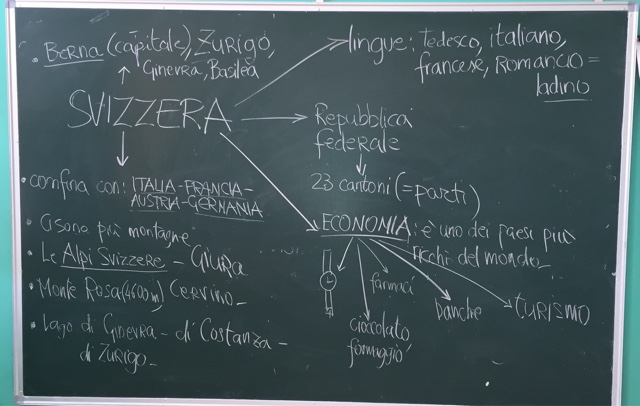 • Berna (capitale), Zurigo,
Ginevra, Basilea
lingue: Tedesco, italiano,
francese, Romancio =
ladino
SVIZZERA
Repubblica
federale
23 cantoni (= parti)
• confina con: ITALIA - FRANCIA -
AUSTRIA - GERMANIA
• ci sono più montagne
• Le Alpi Svizzere - Giura
• Monte Rosa (4600 m) Cervino -
• Lago di Ginevra - di Costanza -
di Zurigo -
ECONOMIA: è uno dei paesi più
ricchi del mondo -
farmaci
cioccolato
formaggio
banche
turismo